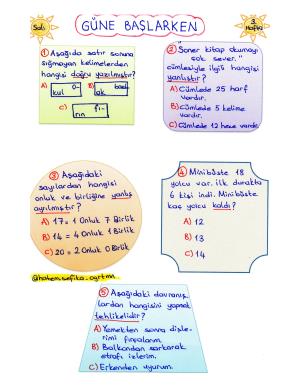 Salı
GÜNE BAŞLARKEN
3. Hafta
① Aşağıda satır sonuna
sığmayan kelimelerden
hangisi doğru yazılmıştır?
A)
kul
B)
ak
C) fı-
rın
② "Soner kitap okumayı
çok sever."
cümlesiyle ilgili hangisi
yanlıştır?
A) Cümlede 25 harf
vardır.
B) Cümlede 5 kelime
vardır.
C) Cümlede 12 hece vardır.
③ Aşağıdaki
sayılardan hangisi
onluk ve birliğine yanlış
ayrılmıştır?
A) 17 = 1 Onluk 7 Birlik
B) 14 = 4 Onluk 1 Birlik
C) 20 = 2 Onluk 0 Birlik
④ Minibüste 18
yolcu var. ilk durakta
6 kişi indi. Minibüste
kaç yolcu kaldı?
A) 12
B) 13
C) 14
@hatem.sefika_ogrtmn
⑤ Aşağıdaki davranış-
lardan hangisini yapmak
tehlikelidir?
A) Yemekten sonra dişle-
rimi fırçalarım.
B) Balkondan sarkarak
etrafı izlerim.
C) Erkenden uyurum.